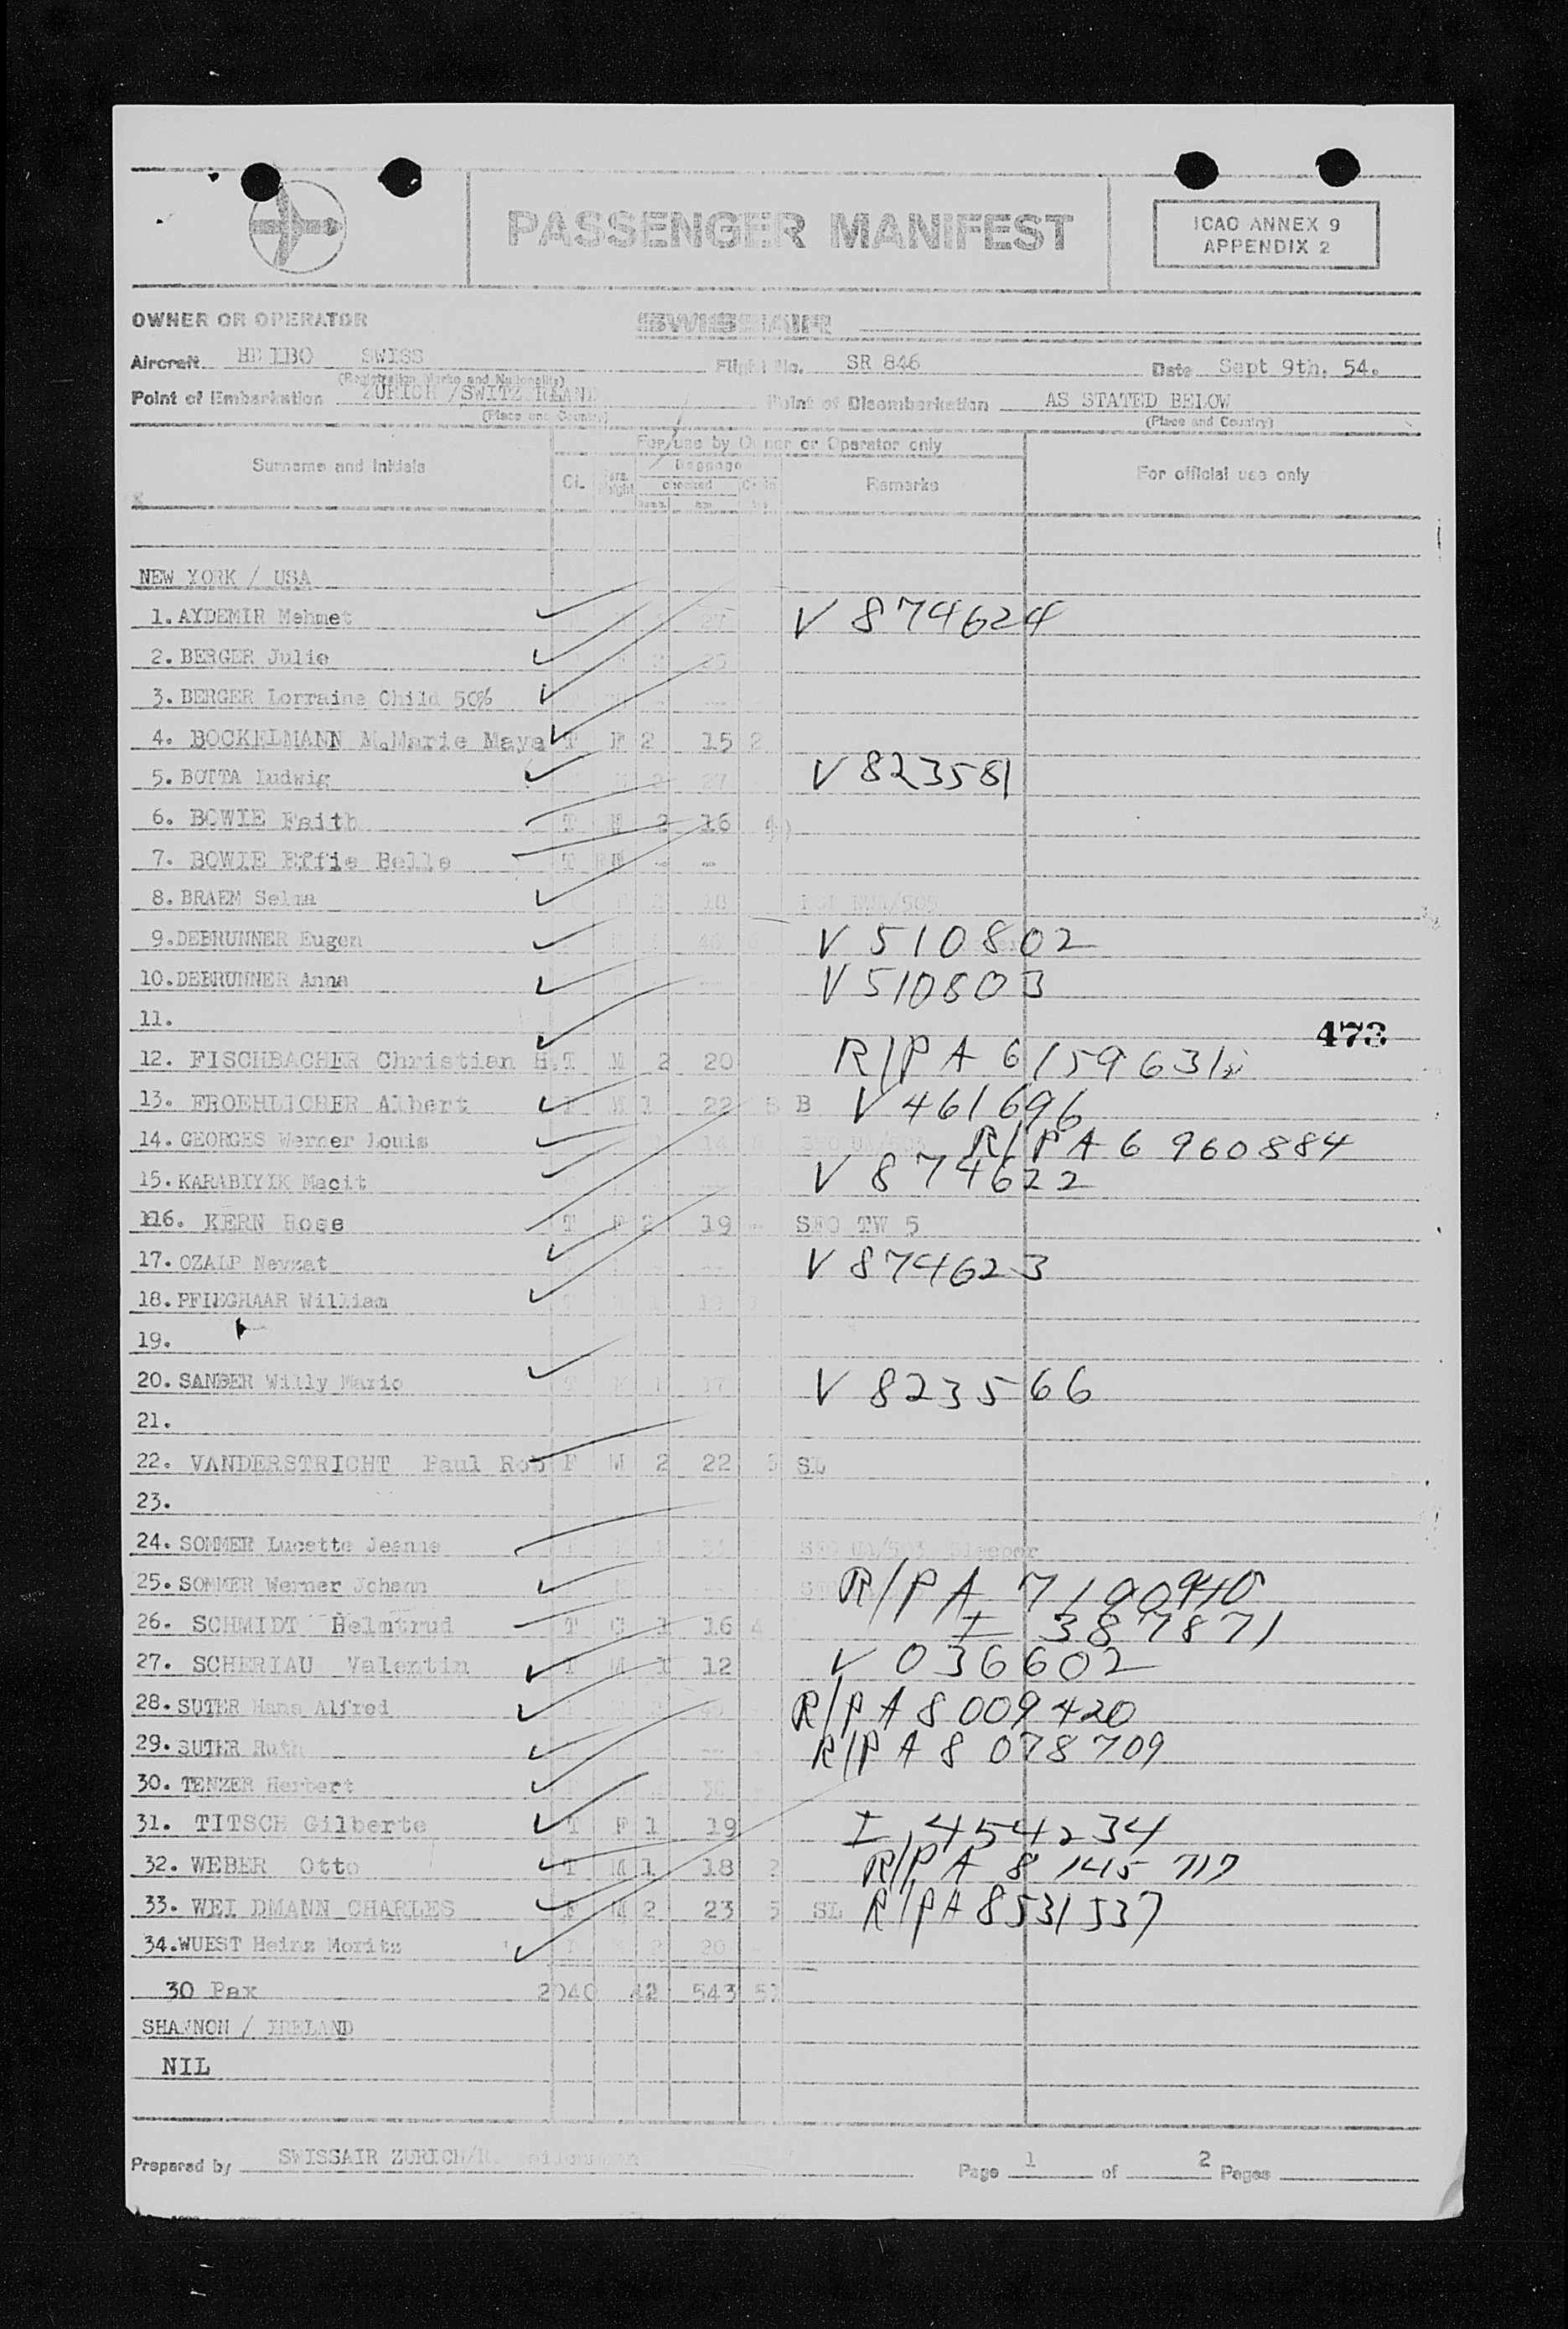 PASSENGER MANIFEST
ICAO ANNEX 9
APPENDIX 2
OWNER OR OPERATOR SWISSAIR
Aircraft SWISS Flight No. SR 846 Date Sept 9th. 54.
(Registration Marks and Nationality)
Point of Embarkation ZURICH /SWITZ Point of Disembarkation AS STATED BELOW
(Place and Country) (Place and Country)
For use by Owner or Operator only
Surname and Initials Cl. Baggage checked Remarks For official use only
NEW YORK / USA
1. AYDEMIR Mehmet 27 V 874624
2. BERGER Julie 25
3. BERGER Lorraine Child 50%
4. BOCKELMANN M.Marie Maya T F 2 15 2
5. BOTTA Ludwig M 2 27 V 823581
6. BOWIE Faith T 2 16
7. BOWIE Effie Belle T - -
8. BRAEM Selma 2 18
9. DEBRUNNER Eugen V 510802
10. DEBRUNNER Anna V 510803
11.
473
12. FISCHBACHER Christian H. T M 2 20 R/PA 6159631
13. FROEHLICHER Albert F M 1 22 5 B V 461696
14. GEORGES Werner Louis 14 R/PA 6 960884
15. KARABIYIK Macit V 874622
16. KERN Rose T F 2 19 - SFO TW 5
17. OZALP Nevzat V 874623
18. PFINGHAAR William
19.
20. SANDER Willy Mario T 17 V 823566
21.
22. VANDERSTRICHT Paul Rob F M 2 22 SL
23.
24. SOMMER Lucette Jeanne SFO UA/503 Sleeper
25. SOMMER Werner Johann R/PA 7190940
26. SCHMIDT Helmtrud T 1 16 4 I 387871
27. SCHERIAU Valentin T M 1 12 V 036602
28. SUTER Hans Alfred R/PA 8009420
29. SUTER Ruth R/PA 8 078709
30. TENZER Herbert
31. TITSCH Gilberte T F 1 19 I 454234
32. WEBER Otto T M 1 18 2 R/PA 8 145 717
33. WEI DMANN CHARLES F M 2 23 5 SL R/PA 8531537
34. WUEST Heinz Moritz 20
30 Pax 2040 42 543
SHANNON / IRELAND
NIL
Prepared by SWISSAIR ZURICH/ Page 1 of 2 Pages